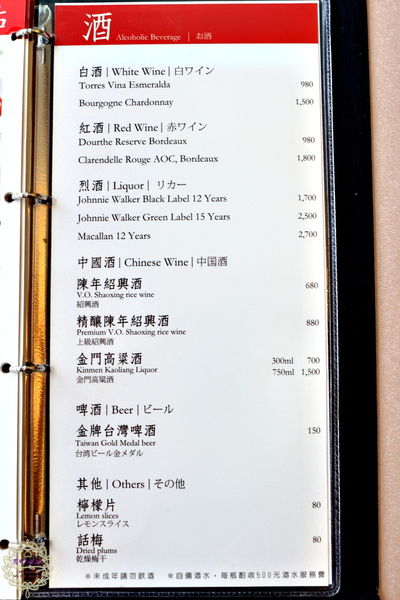 酒 Alcoholic Beverage | お酒
白酒 | White Wine | 白ワイン
Torres Vina Esmeralda 980
Bourgogne Chardonnay 1,500
紅酒 | Red Wine | 赤ワイン
Dourthe Reserve Bordeaux 980
Clarendelle Rouge AOC, Bordeaux 1,800
烈酒 | Liquor | リカー
Johnnie Walker Black Label 12 Years 1,700
Johnnie Walker Green Label 15 Years 2,500
Macallan 12 Years 2,700
中國酒 | Chinese Wine | 中国酒
陳年紹興酒 680
V.O. Shaoxing rice wine
紹興酒
精釀陳年紹興酒 880
Premium V.O. Shaoxing rice wine
上級紹興酒
金門高粱酒 300ml 700
Kinmen Kaoliang Liquor 750ml 1,500
金門高粱酒
啤酒 | Beer | ビール
金牌台灣啤酒 150
Taiwan Gold Medal beer
台湾ビール金メダル
其他 | Others | その他
檸檬片 80
Lemon slices
レモンスライス
話梅 80
Dried plums
乾燥梅干
※未成年請勿飲酒 ※自備酒水，每瓶酌收500元酒水服務費